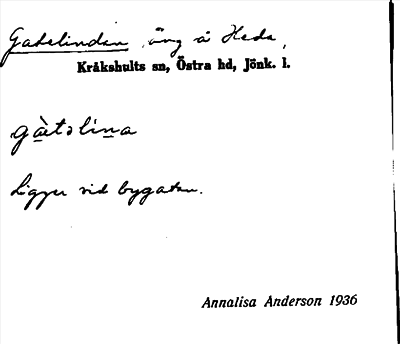 Gatelindan, äng å Heda,
Kråkshults sn, Östra hd, Jönk. l.
gàtəlina
Ligger vid bygatan.
Annalisa Anderson 1936